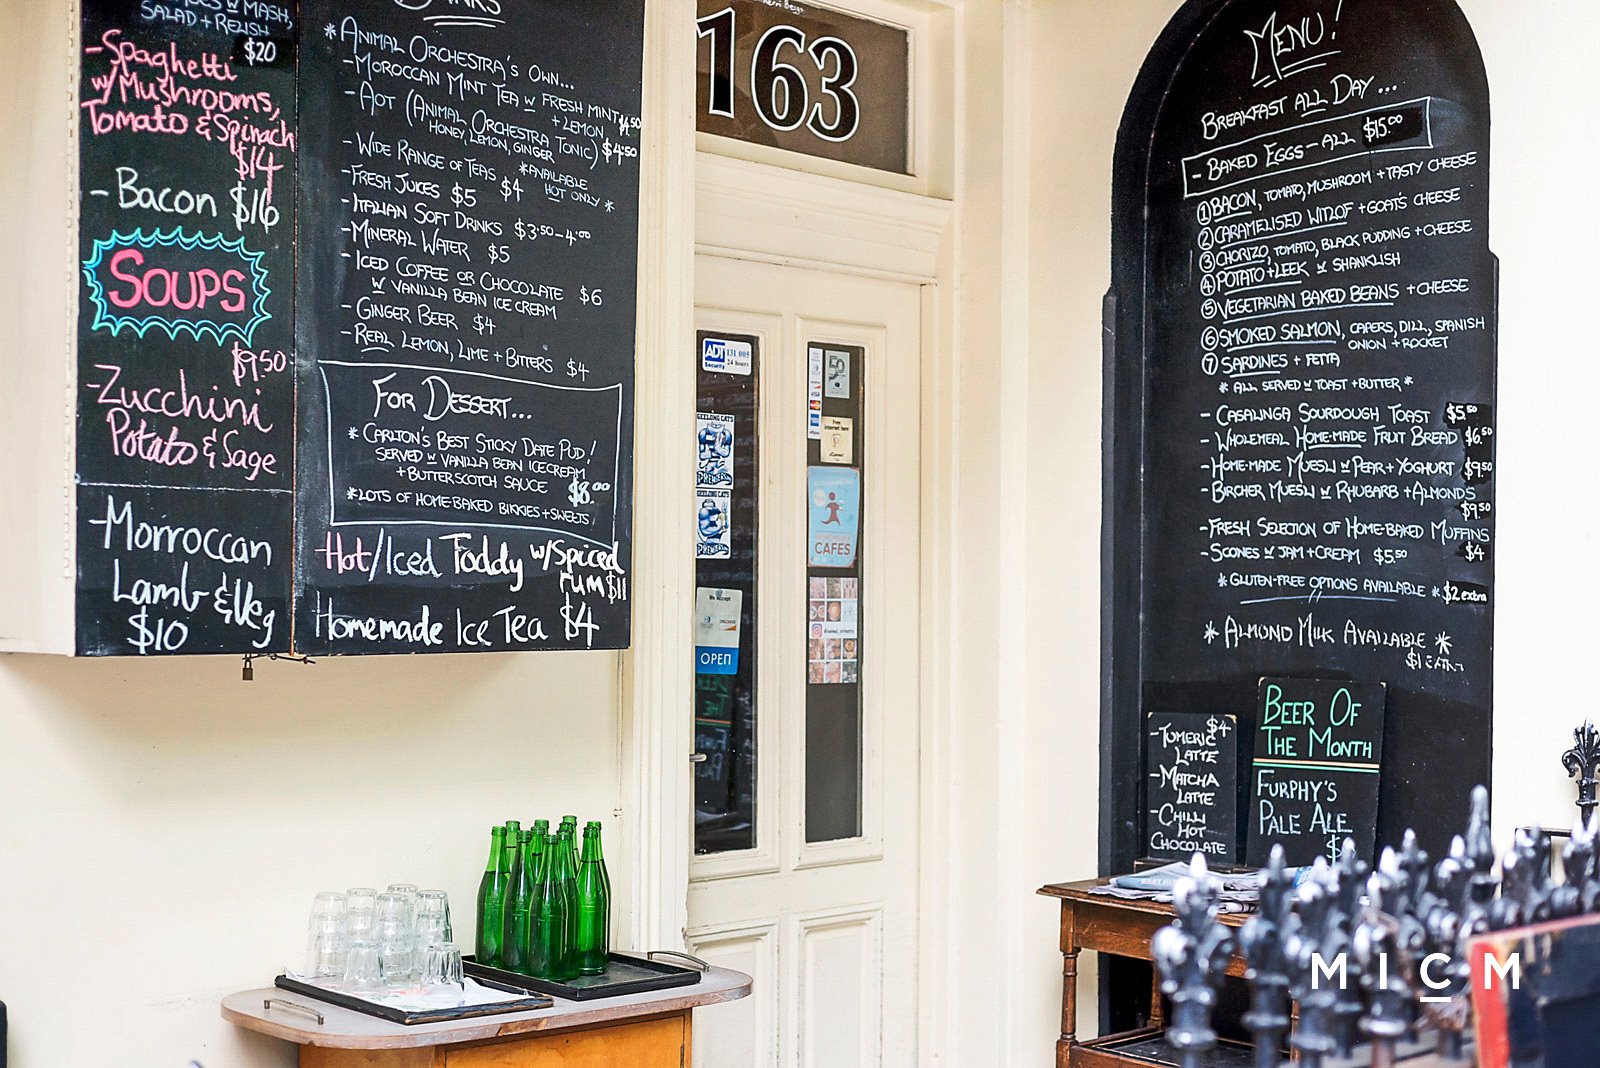 W MASH,
SALAD + RELISH
$20
-Spaghetti
w/Mushrooms,
Tomato & Spinach
$14
-Bacon $16
SOUPS
$9.50
-Zucchini
Potato & Sage
-Morroccan
Lamb & Veg
$10
*ANIMAL ORCHESTRA'S OWN...
-MOROCCAN MINT TEA W FRESH MINT
+ LEMON, $4.50
-AOT (ANIMAL ORCHESTRA TONIC) $4.50
HONEY, LEMON, GINGER
-WIDE RANGE OF TEAS $4
*AVAILABLE
HOT ONLY*
-FRESH JUICES $5
-ITALIAN SOFT DRINKS $3.50-4.00
-MINERAL WATER $5
-ICED COFFEE OR CHOCOLATE $6
W VANILLA BEAN ICE CREAM
-GINGER BEER $4
-REAL LEMON, LIME + BITTERS $4
FOR DESSERT...
*CARLTON'S BEST STICKY DATE PUD!
SERVED W VANILLA BEAN ICECREAM
+ BUTTERSCOTCH SAUCE $8.00
*LOTS OF HOME-BAKED BIKKIES + SWEETS
Hot/Iced Toddy w/Spiced
rum $11
Homemade Ice Tea $4
163
ADT 131 005
Security 24 hours
GEELONG CATS
PREMIERS
GEELONG CATS
PREMIERS
We Accept
DISCOVER
OPEN
VISA
50
Free
internet here
CAFES
MENU!
BREAKFAST ALL DAY...
- BAKED EGGS - ALL $15.00
1 BACON, TOMATO, MUSHROOM + TASTY CHEESE
2 CARAMELISED WITLOF + GOAT'S CHEESE
3 CHORIZO, TOMATO, BLACK PUDDING + CHEESE
4 POTATO + LEEK W SHANKLISH
5 VEGETARIAN BAKED BEANS + CHEESE
6 SMOKED SALMON, CAPERS, DILL, SPANISH
ONION + ROCKET
7 SARDINES + FETTA
* ALL SERVED W TOAST + BUTTER *
- CASALINGA SOURDOUGH TOAST $5.50
- WHOLEMEAL HOME-MADE FRUIT BREAD $6.50
-HOME-MADE MUESLI W PEAR + YOGHURT $9.50
- BIRCHER MUESLI W RHUBARB + ALMONDS
$9.50
-FRESH SELECTION OF HOME-BAKED MUFFINS
$4
-SCONES W JAM + CREAM $5.50
*GLUTEN-FREE OPTIONS AVAILABLE * $2 extra
* ALMOND MILK AVAILABLE *
$1 EXTRA
$4
-TUMERIC
LATTE
-MATCHA
LATTE
-CHILLI
HOT
CHOCOLATE
BEER OF
THE MONTH
FURPHY'S
PALE ALE
$
MICM